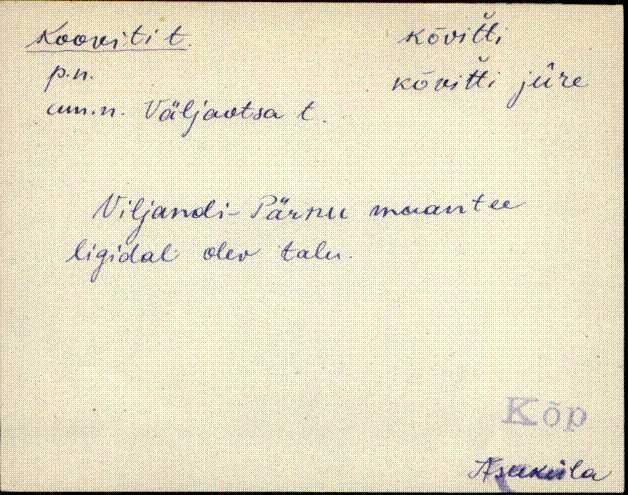 Kooviti t. kõvitti
p.n. kõvitti jüre
um.n. Väljaotsa t.
Viljandi-Pärnu maantee
ligidal olev talu.
Kõp
Asuküla